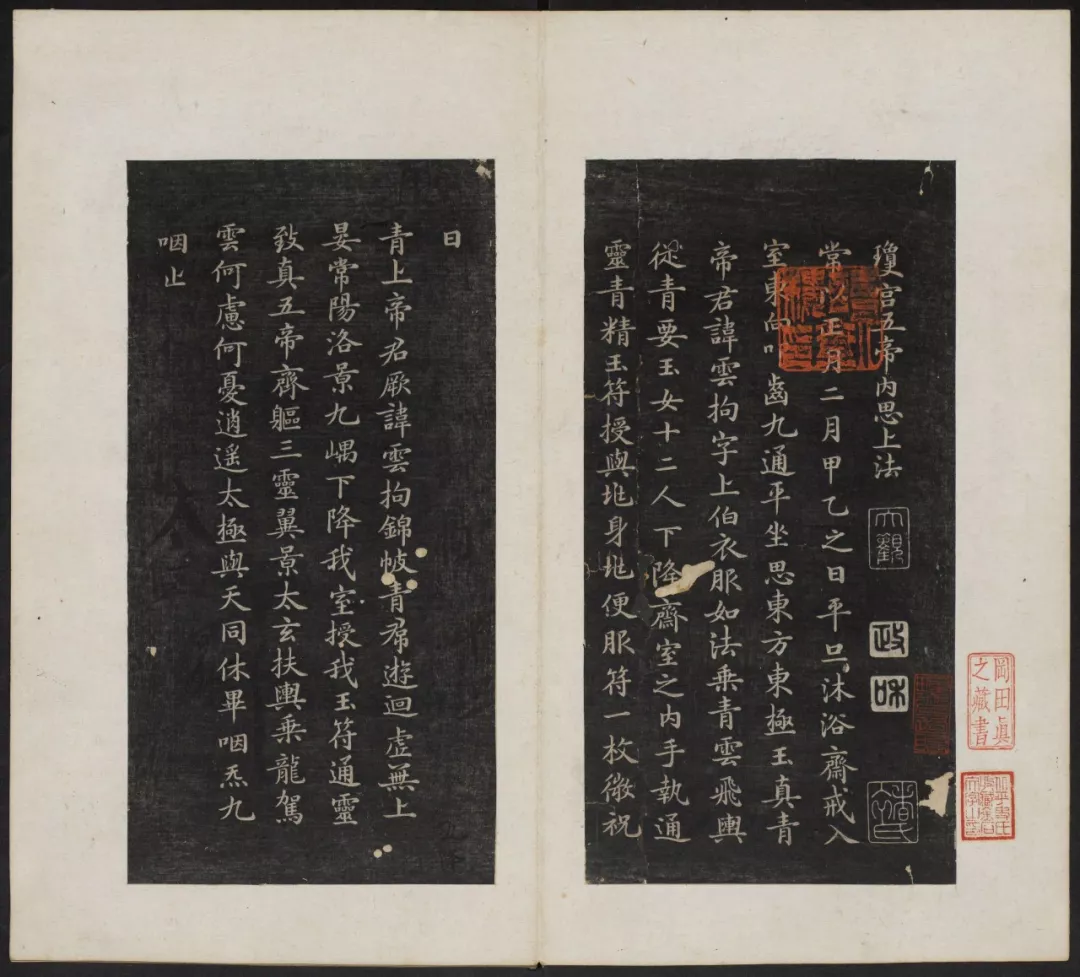 瓊宮五帝內思上法
常以正月二月甲乙之日平旦沐浴齋戒入
室東向叩齒九通平坐思東方東極玉真青
帝君諱雲拘字上伯衣服如法乗青雲飛輿
從青要玉女十二人下降齋室之內手執通
靈青精玉符授與地身地便服符一枚微祝
曰
青上帝君厥諱雲拘錦帔青帬遊迴虛無上
晏常陽洛景九嵎下降我室授我玉符通靈
致真五帝齊軀三靈翼景太玄扶輿乗龍駕
雲何慮何憂逍遥太極與天同休畢咽炁九
咽止
大觀
政
和
岡田眞
之藏書